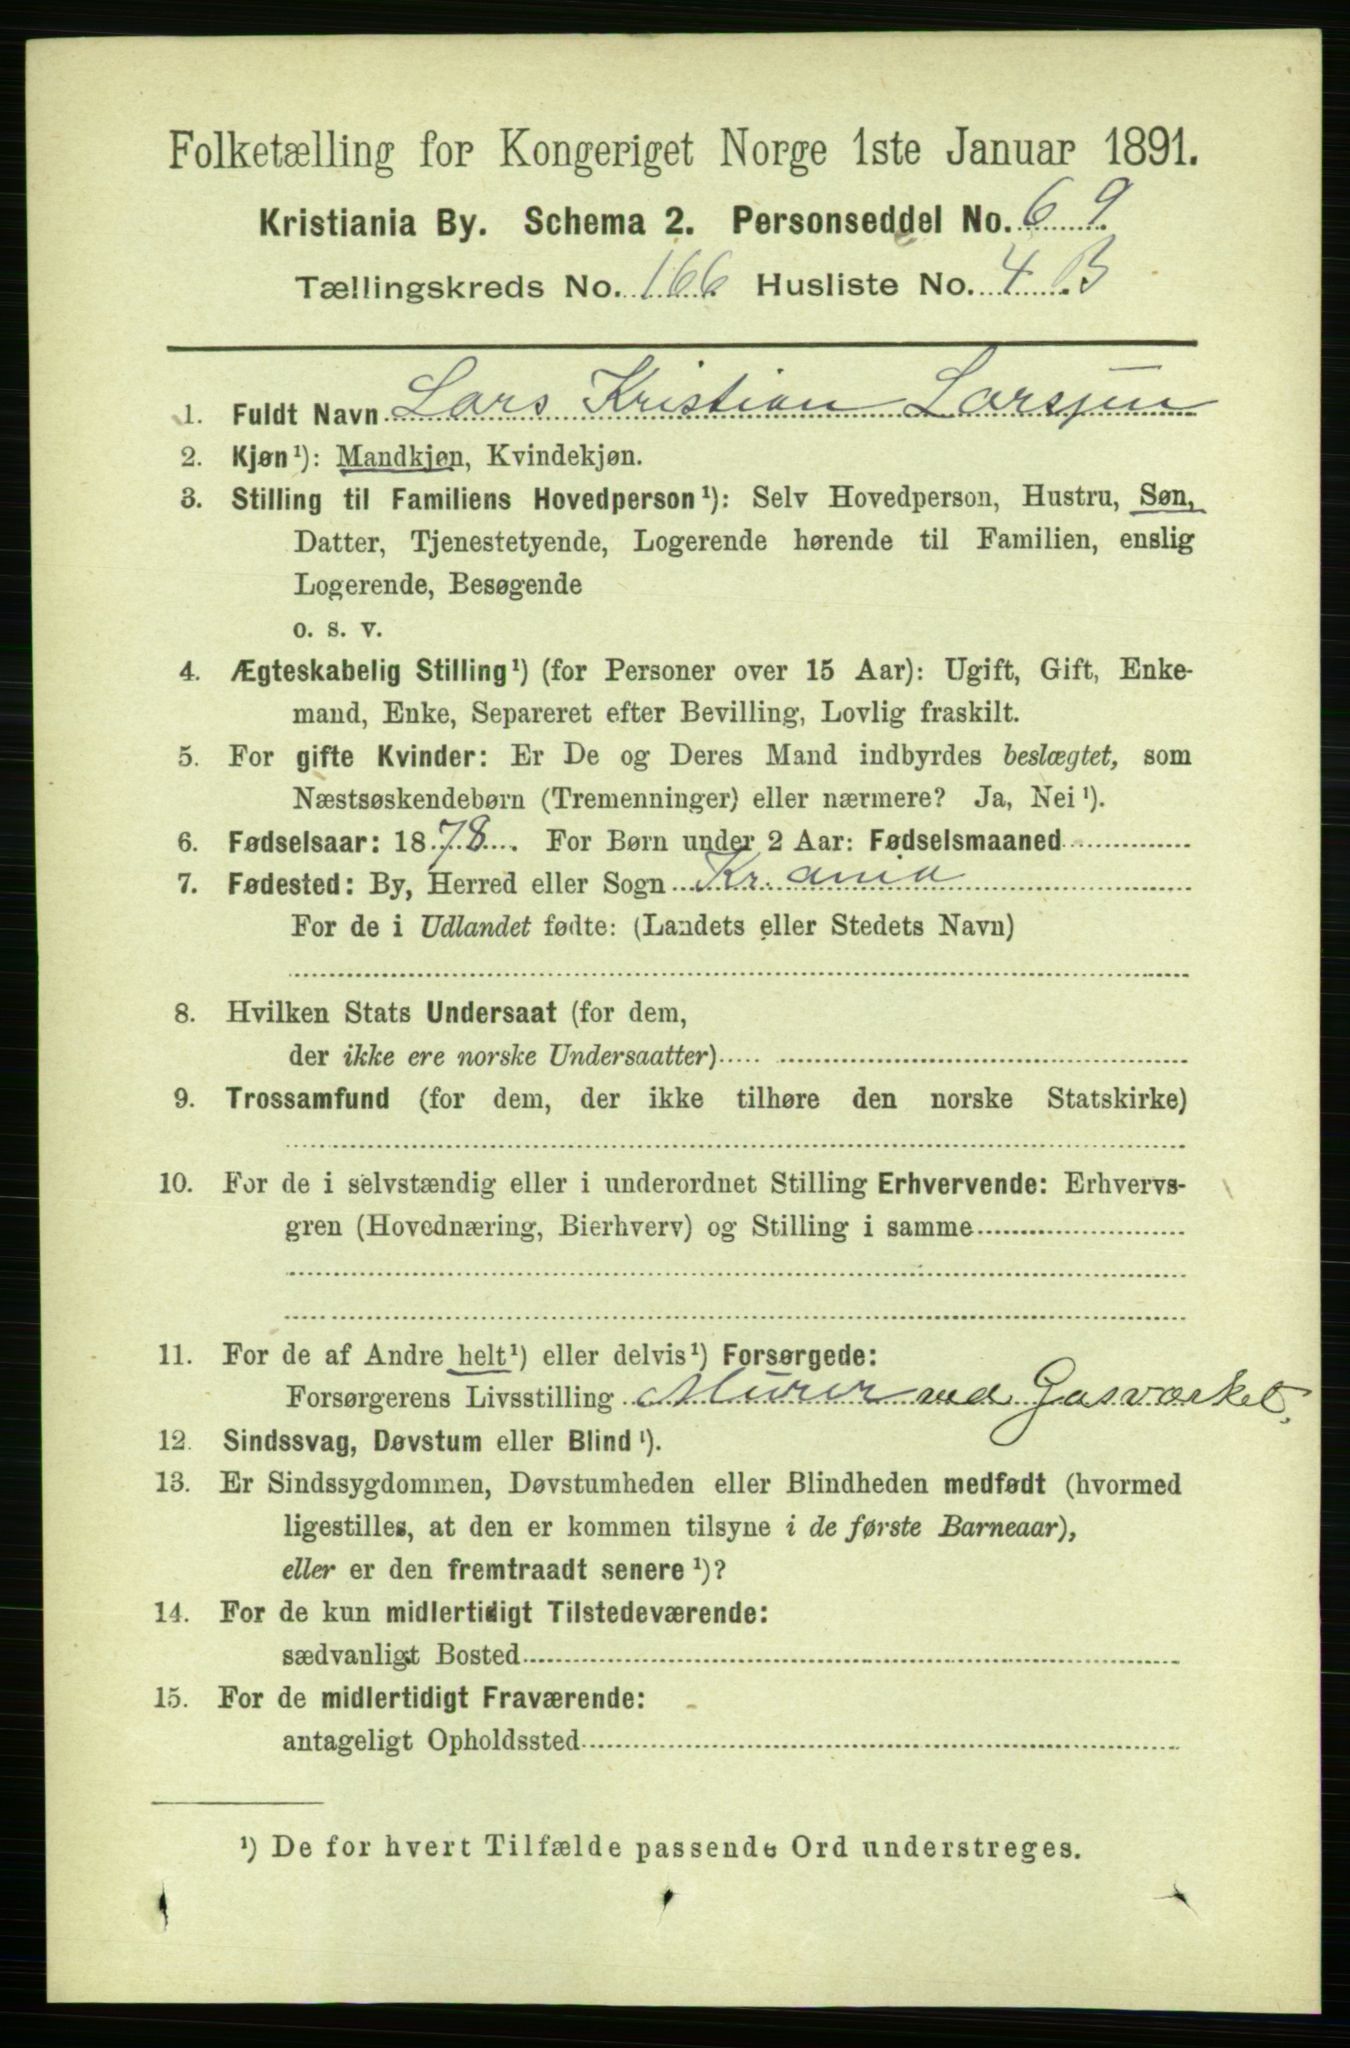 Folketælling for Kongeriget Norge 1ste Januar 1891.
Kristiania By. Schema 2. Personseddel No. 69
Tællingskreds No. 166 Husliste No. 4 B
1. Fuldt Navn Lars Kristian Larsen
2. Kjøn¹): Mandkjøn, Kvindekjøn.
3. Stilling til Familiens Hovedperson¹): Selv Hovedperson, Hustru, Søn,
Datter, Tjenestetyende, Logerende hørende til Familien, enslig
Logerende, Besøgende
o. s. v.
4. Ægteskabelig Stilling¹) (for Personer over 15 Aar): Ugift, Gift, Enke-
mand, Enke, Separeret efter Bevilling, Lovlig fraskilt.
5. For gifte Kvinder: Er De og Deres Mand indbyrdes beslægtet, som
Næstsøskendebørn (Tremenninger) eller nærmere? Ja, Nei¹).
6. Fødselsaar: 1878. For Børn under 2 Aar: Fødselsmaaned
7. Fødested: By, Herred eller Sogn Kr.ania
For de i Udlandet fødte: (Landets eller Stedets Navn)
8. Hvilken Stats Undersaat (for dem,
der ikke ere norske Undersaatter)
9. Trossamfund (for dem, der ikke tilhøre den norske Statskirke)
10. For de i selvstændig eller i underordnet Stilling Erhvervende: Erhvervs-
gren (Hovednæring, Bierhverv) og Stilling i samme
11. For de af Andre helt¹) eller delvis¹) Forsørgede:
Forsørgerens Livsstilling Murer ved Gasværket.
12. Sindssvag, Døvstum eller Blind¹).
13. Er Sindssygdommen, Døvstumheden eller Blindheden medfødt (hvormed
ligestilles, at den er kommen tilsyne i de første Barneaar),
eller er den fremtraadt senere¹)?
14. For de kun midlertidigt Tilstedeværende:
sædvanligt Bosted
15. For de midlertidigt Fraværende:
antageligt Opholdssted
¹) De for hvert Tilfælde passende Ord understreges.